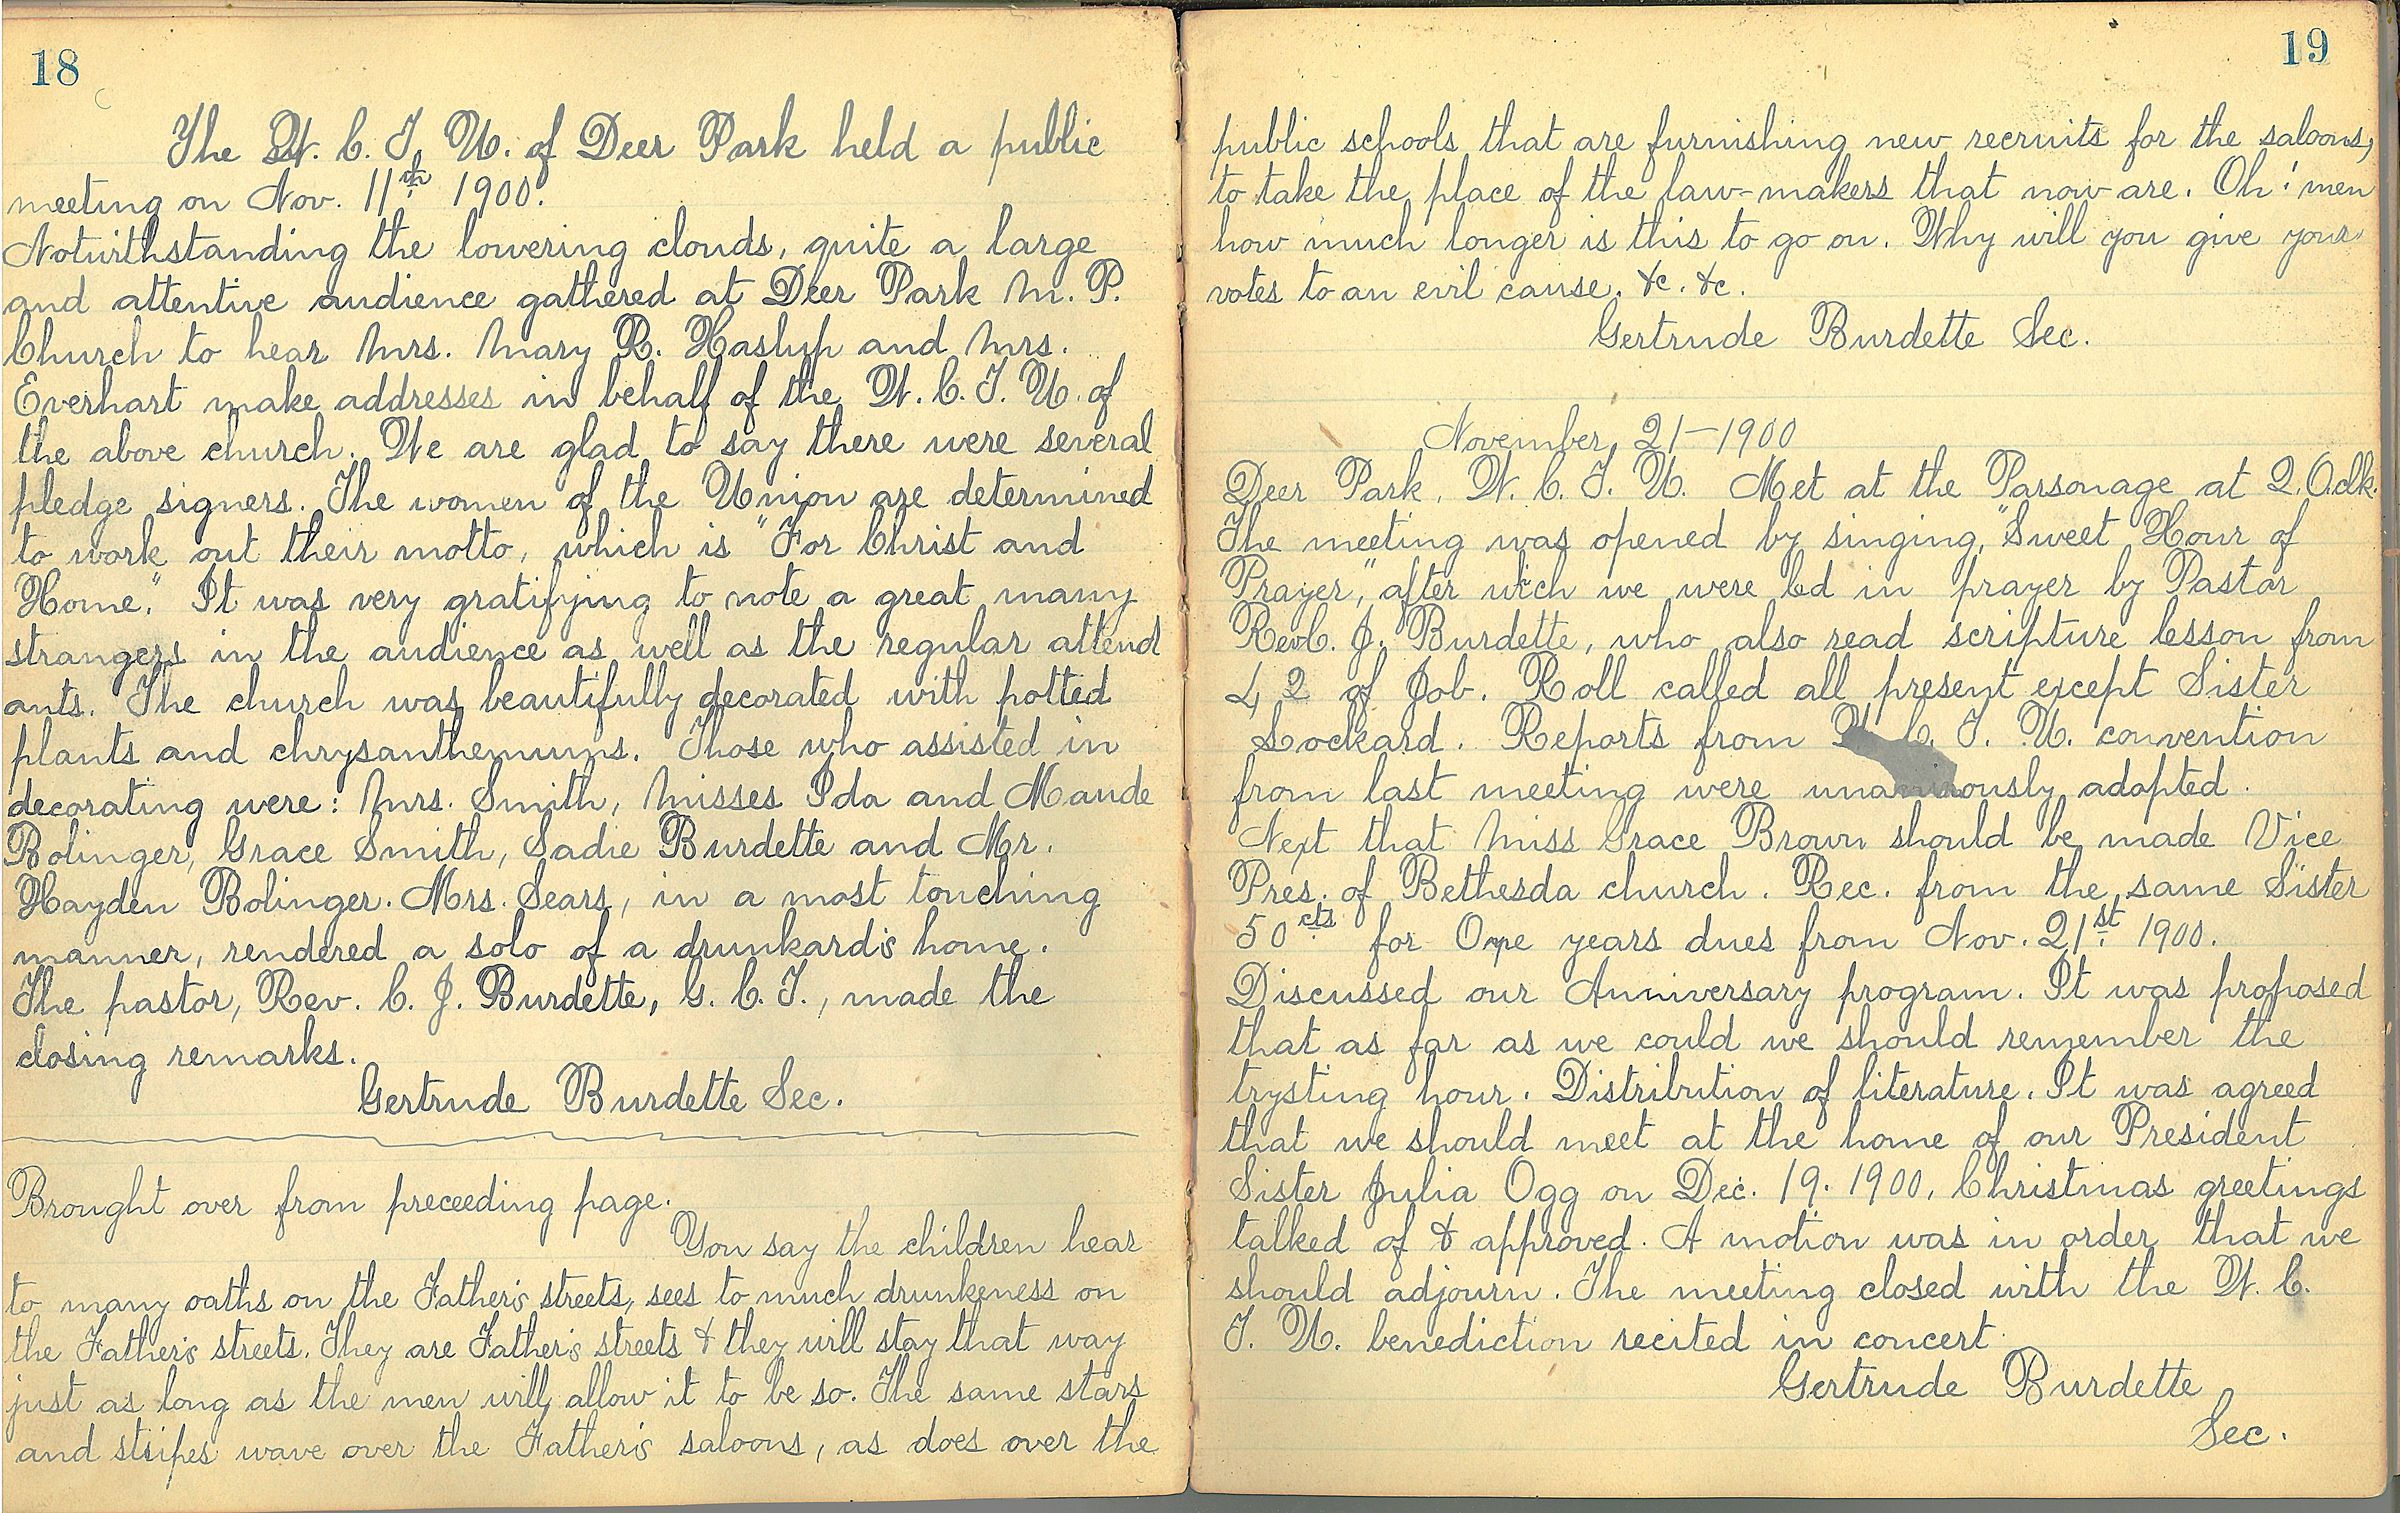 18
The W. C. T. U. of Deer Park held a public
meeting on Nov. 11th 1900.
Notwithstanding the lowering clouds, quite a large
and attentive audience gathered at Deer Park M. P.
Church to hear Mrs. Mary R. Haslup and Mrs.
Everhart make addresses in behalf of the W. C. T. U. of
the above church. We are glad to say there were several
pledge signers. The women of the Union are determined
to work out their motto, which is "For Christ and
Home." It was very gratifying to note a great many
strangers in the audience as well as the regular attend
ants. The church was beautifully decorated with potted
plants and chrysanthemums. Those who assisted in
decorating were: Mrs. Smith, Misses Ida and Maude
Bolinger, Grace Smith, Sadie Burdette and Mr.
Hayden Bolinger. Mrs. Sears, in a most touching
manner, rendered a solo of a drunkard's home.
The pastor, Rev. C. J. Burdette, G. C. T., made the
closing remarks.
Gertrude Burdette Sec.
Brought over from preceeding page.
You say the children hear
to many oaths on the Father's streets, sees to much drunkeness on
the Father's streets. They are Father's streets & they will stay that way
just as long as the men will allow it to be so. The same stars
and stripes wave over the Father's saloons, as does over the
19
public schools that are furnishing new recruits for the saloons,
to take the place of the law-makers that now are. Oh! men
how much longer is this to go on. Why will you give your
votes to an evil cause. &c. &c.
Gertrude Burdette Sec.
November, 21-1900
Deer Park, W. C. T. U. Met at the Parsonage at 2. Oclk.
The meeting was opened by singing, "Sweet Hour of
Prayer," after wich we were led in prayer by Pastor
Rev C. J. Burdette, who also read scripture lesson from
42 of Job. Roll called all present except Sister
Lockard. Reports from W. C. T. U. convention
from last meeting were unanimously adopted.
Next that Miss Grace Brown should be made Vice
Pres. of Bethesda church. Rec. from the same Sister
50 cts for One years dues from Nov. 21st 1900.
Discussed our Anniversary program. It was proposed
that as far as we could we should remember the
trysting hour. Distribution of literature. It was agreed
that we should meet at the home of our President
Sister Julia Ogg on Dec. 19. 1900. Christmas greetings
talked of & approved. A motion was in order that we
should adjourn. The meeting closed with the W. C.
T. U. benediction recited in concert.
Gertrude Burdette
Sec.